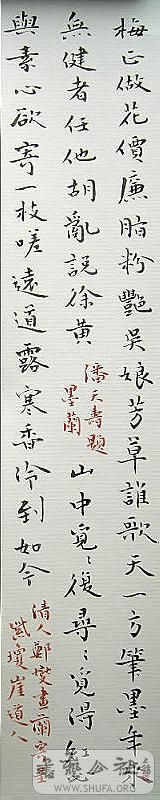 梅正做花價廉脂粉艷吳娘芳草誰歌天一方筆墨年來
無健者任他胡亂說徐黃
潘天壽題
墨蘭
山中覓〻復尋〻覓得紅心
與素心欲寄一枝嗟遠道露寒香冷到如今
清人鄭燮畫蘭寄
紫瓊崖道人
WWW.SHUFA.ORG